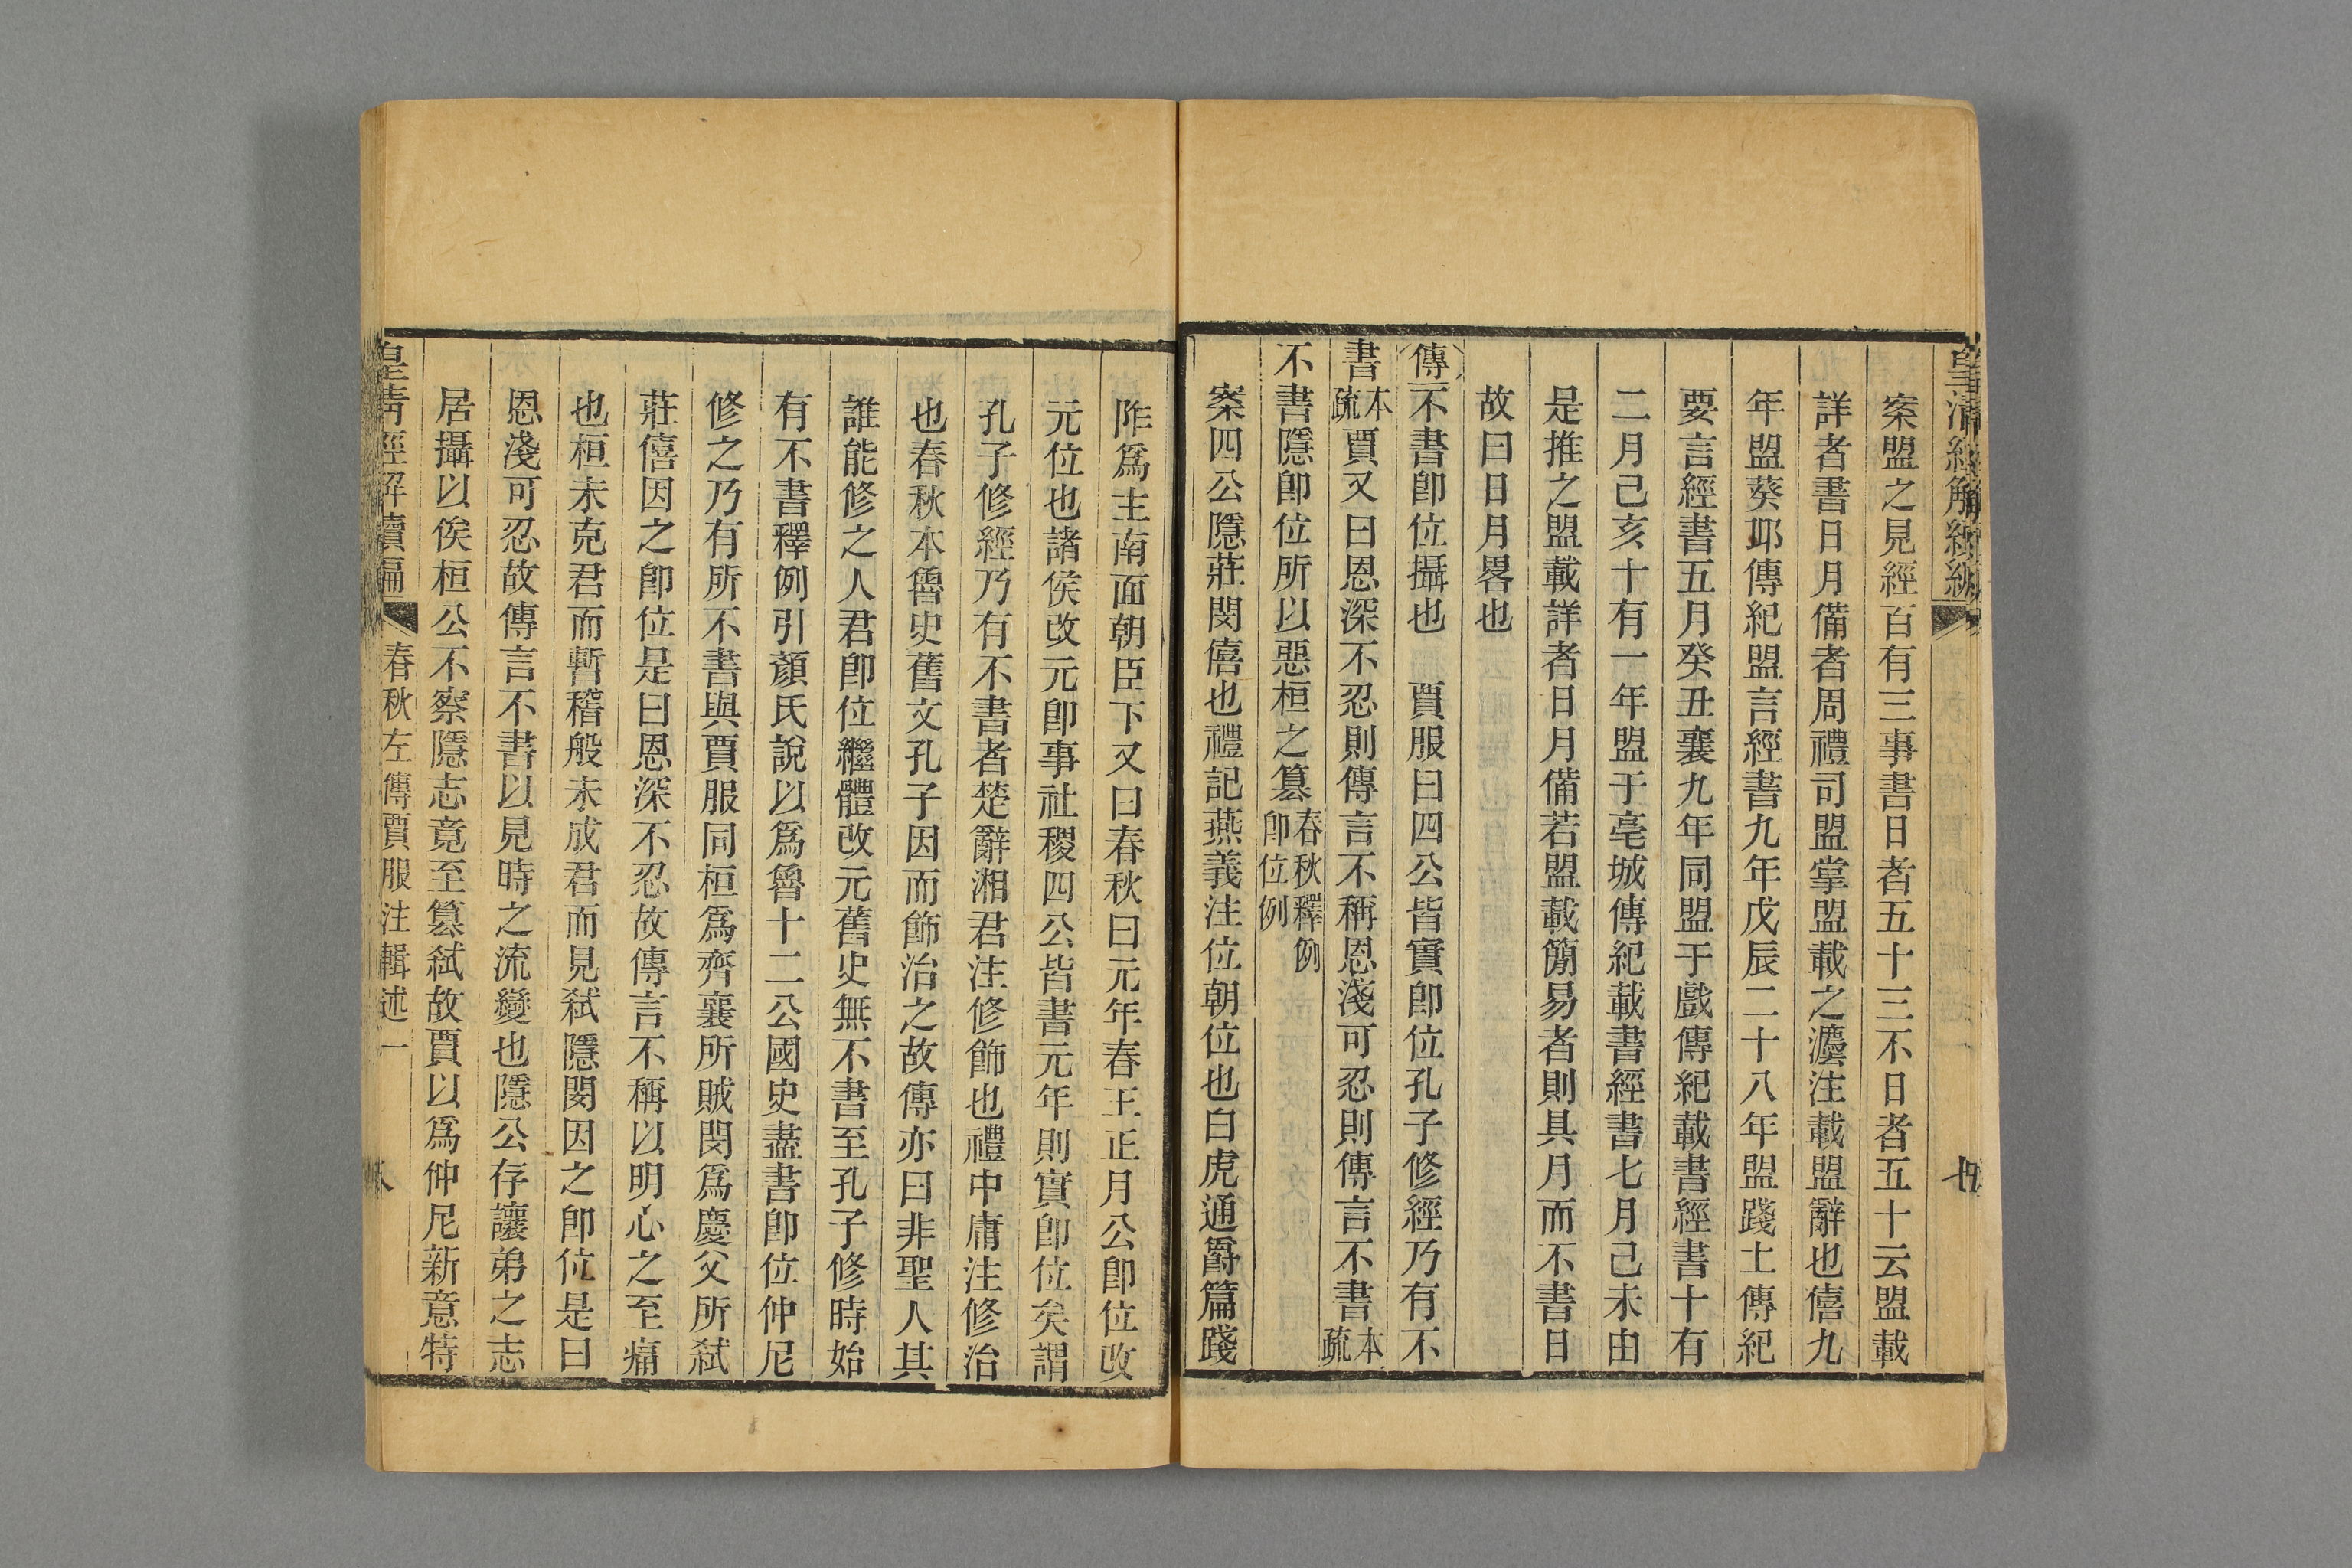 案盟之見經百有三事書日者五十三不日者五十云盟載
詳者書日月備者周禮司盟掌盟載之灋注載盟辭也僖九
年盟葵邱傳紀盟言經書九年戊辰二十八年盟踐土傳紀
要言經書五月癸丑襄九年同盟于戲傳紀載書經書十有
二月己亥十有一年盟于亳城傳紀載書經書七月己未由
是推之盟載詳者日月備若盟載簡易者則具月而不書日
故曰日月畧也
傳不書卽位攝也 賈服曰四公皆實卽位孔子修經乃有不
書本疏賈又曰恩深不忍則傳言不稱恩淺可忍則傳言不書本疏
不書隱卽位所以惡桓之篡春秋釋例卽位例
案四公隱莊閔僖也禮記燕義注位朝位也白虎通爵篇踐
阼爲主南面朝臣下又曰春秋曰元年春王正月公卽位改
元位也諸侯改元卽事社稷四公皆書元年則實卽位矣謂
孔子修經乃有不書者楚辭湘君注修飾也禮中庸注修治
也春秋本魯史舊文孔子因而飾治之故傳亦曰非聖人其
誰能修之人君卽位繼體改元舊史無不書至孔子修時始
有不書釋例引顏氏說以爲魯十二公國史盡書卽位仲尼
修之乃有所不書與賈服同桓爲齊襄所賊閔爲慶父所弒
莊僖因之卽位是曰恩深不忍故傳言不稱以明心之至痛
也桓未克君而暫稽般未成君而見弒隱閔因之卽位是曰
恩淺可忍故傳言不書以見時之流變也隱公存讓弟之志
居攝以俟桓公不察隱志竟至篡弒故賈以爲仲尼新意特
皇清經解續編 春秋左傳賈服注輯述一